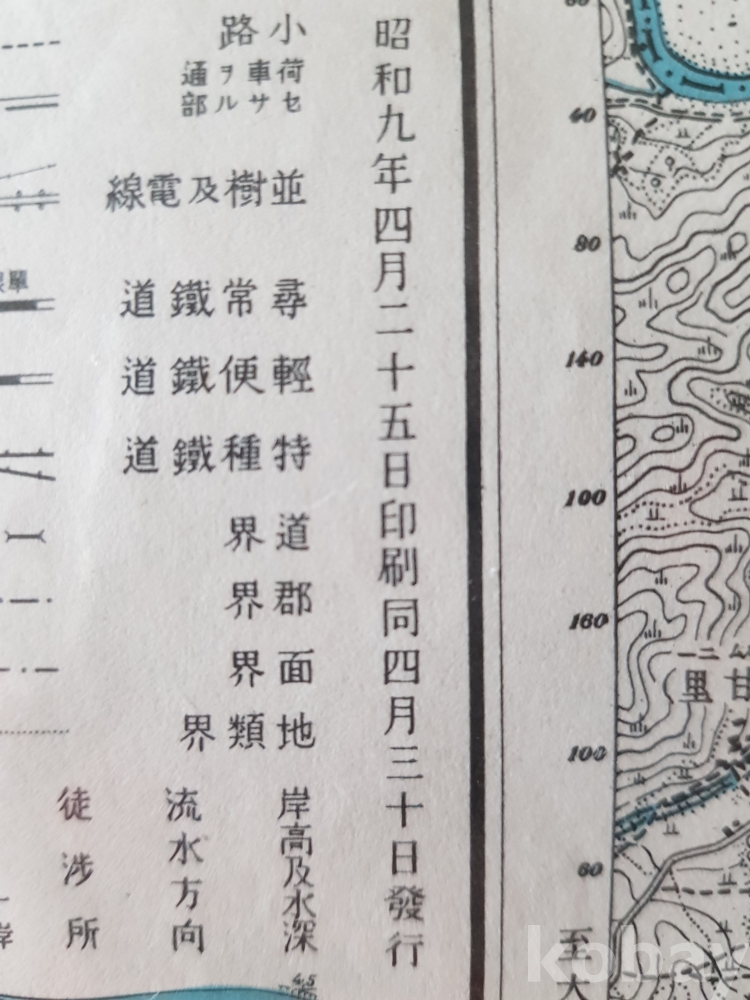 昭和九年四月二十五日印刷同四月三十日發行
小路
荷車ヲ通
セサル部
並樹及電線
尋常鐵道
輕便鐵道
特種鐵道
道界
郡界
面界
地類界
岸高及水深
流水方向
徒涉所
單
4.5
60
80
140
100
160
100
60
甘里
至大
kobay